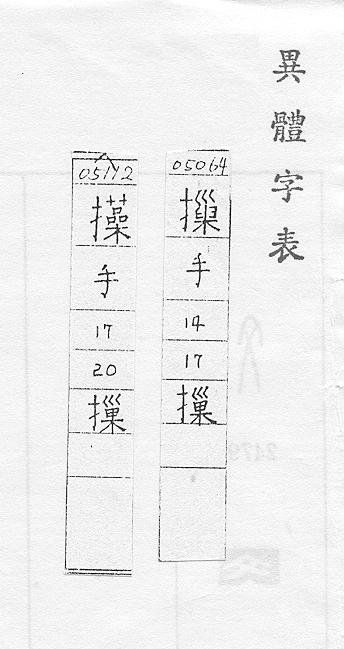 異體字表
05064
手
14
17
摷
05172
手
17
20
摷